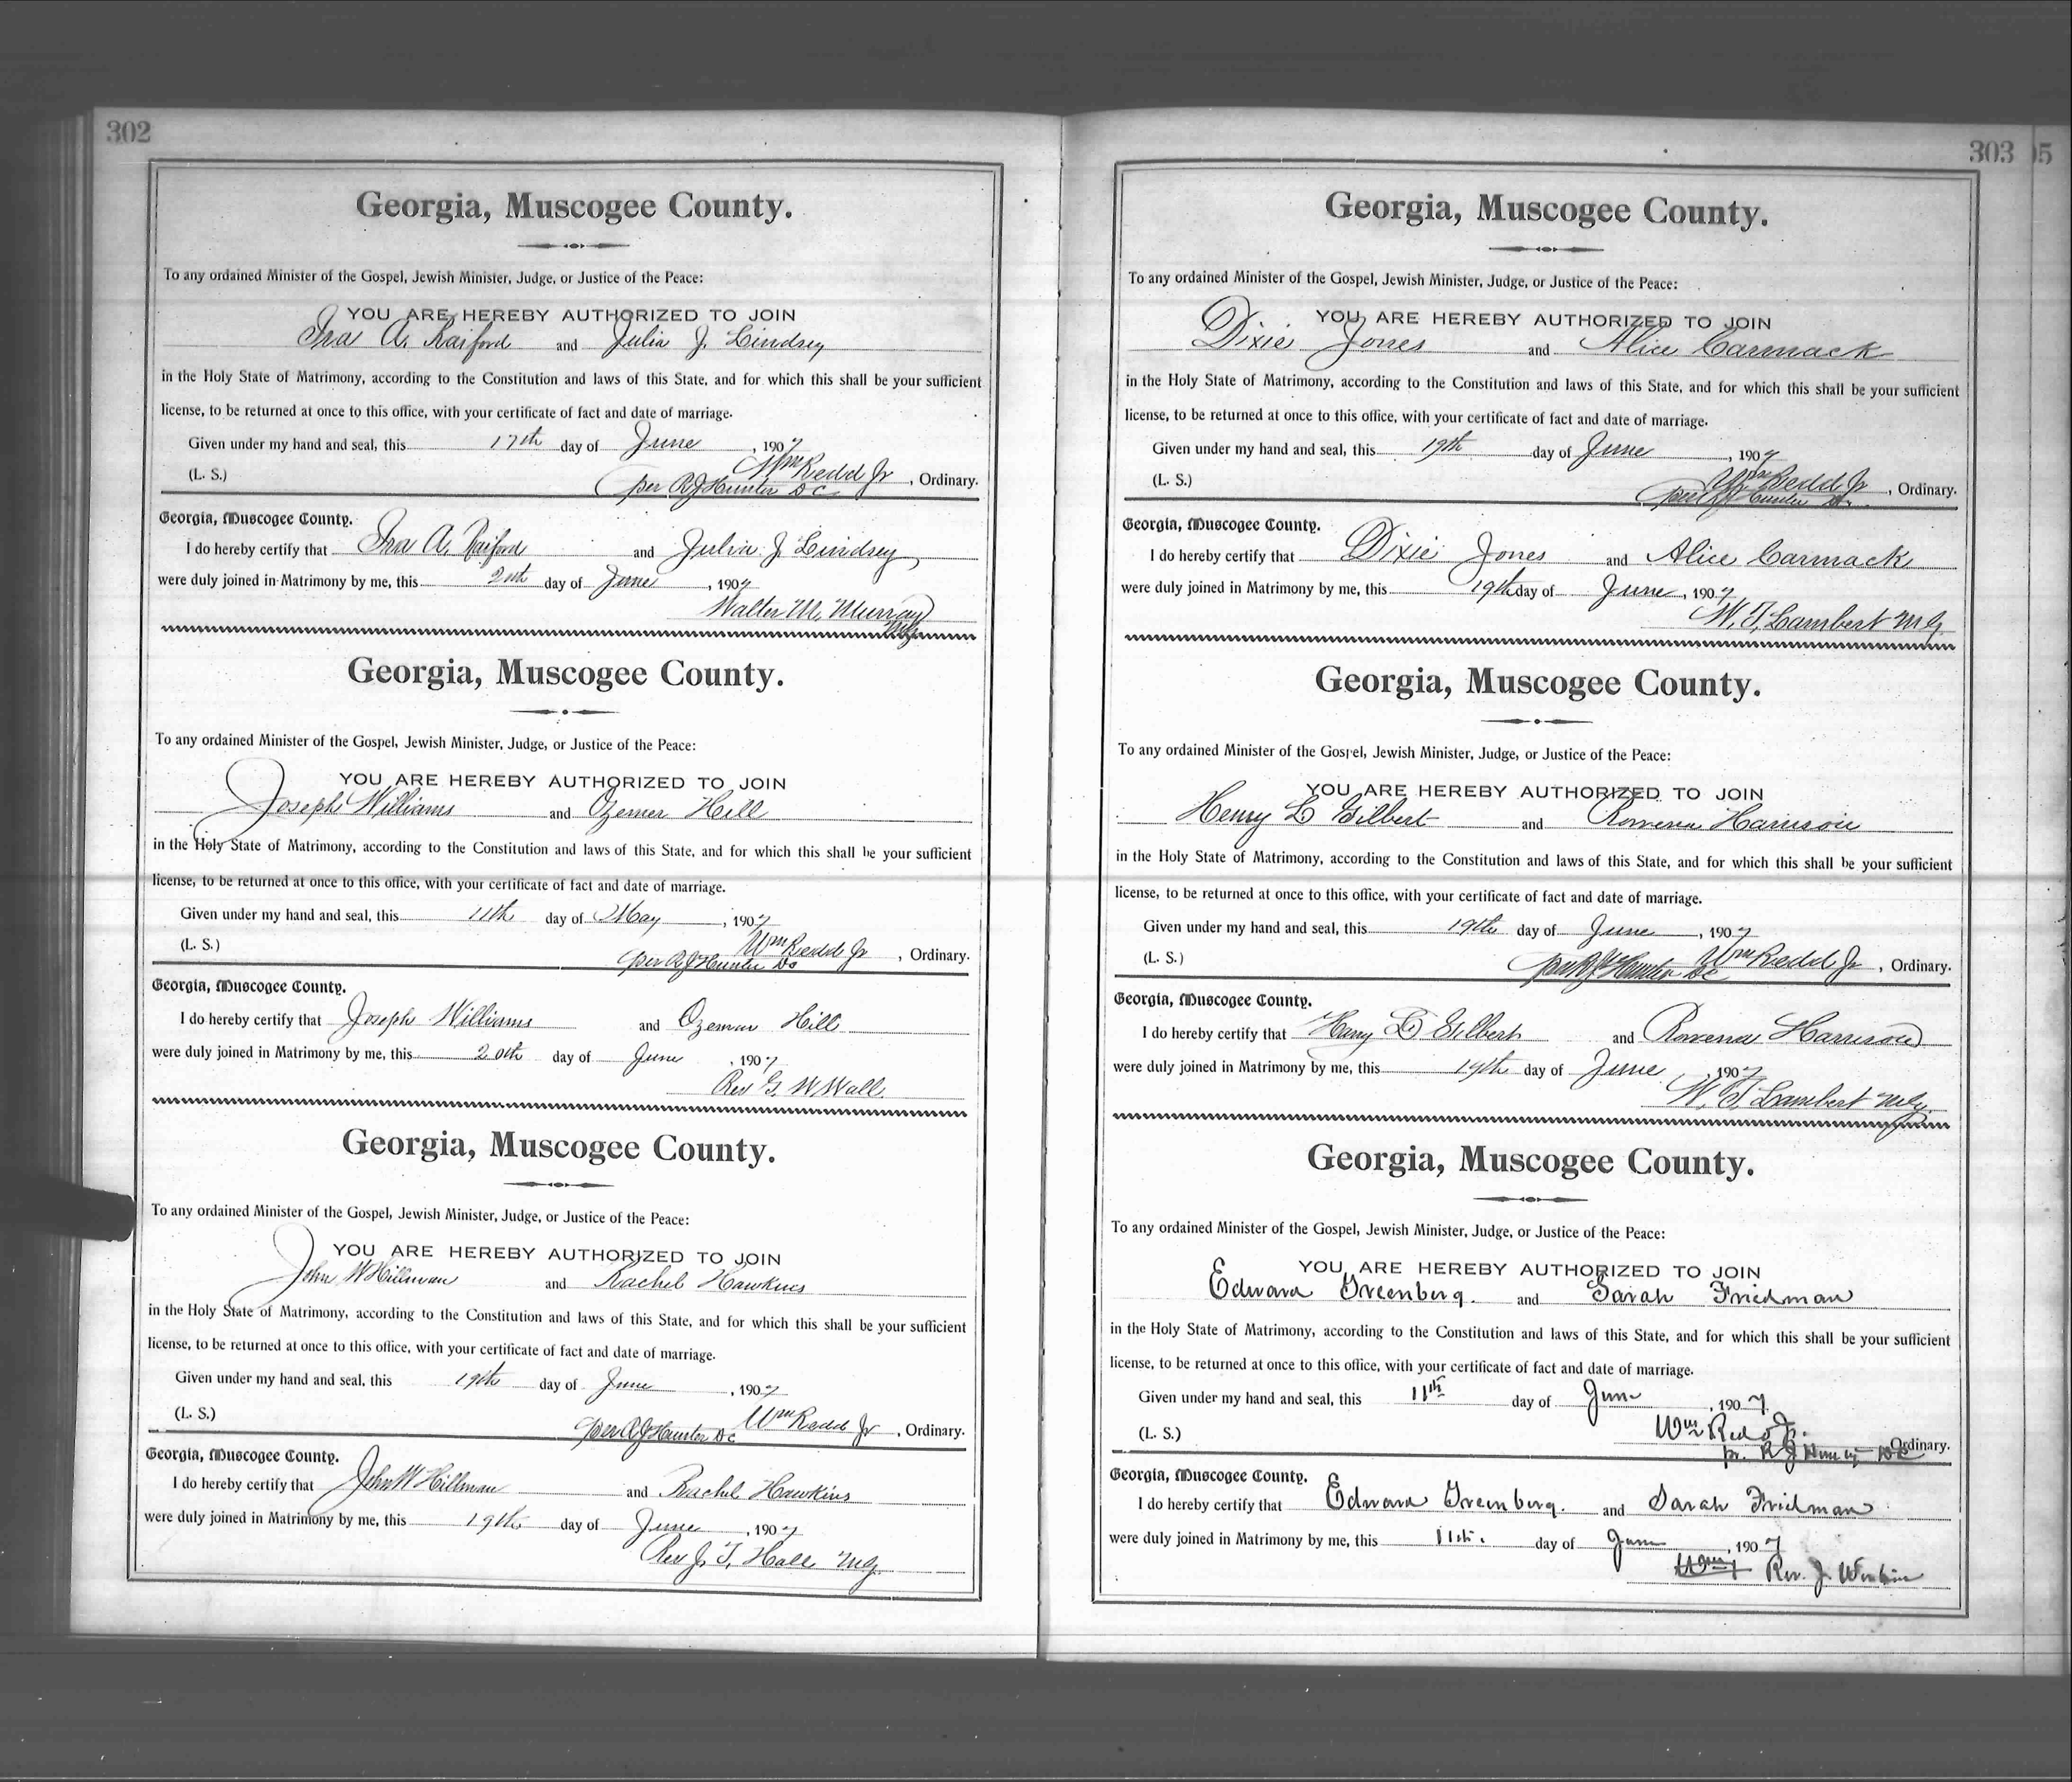 302
Georgia, Muscogee County.
To any ordained Minister of the Gospel, Jewish Minister, Judge, or Justice of the Peace:
YOU ARE HEREBY AUTHORIZED TO JOIN
Ira A. Raiford and Julia J. Lindsey
in the Holy State of Matrimony, according to the Constitution and laws of this State, and for which this shall be your sufficient
license, to be returned at once to this office, with your certificate of fact and date of marriage.
Given under my hand and seal, this 17th day of June, 1907
Wm Redd Jr
(L. S.) per R J Hunter DC, Ordinary.
Georgia, Muscogee County.
I do hereby certify that Ira A. Raiford and Julia J Lindsey
were duly joined in Matrimony by me, this 20th day of June, 1907
Walter M. Murray
Mg.
Georgia, Muscogee County.
To any ordained Minister of the Gospel, Jewish Minister, Judge, or Justice of the Peace:
YOU ARE HEREBY AUTHORIZED TO JOIN
Joseph Williams and Ozemer Hill
in the Holy State of Matrimony, according to the Constitution and laws of this State, and for which this shall be your sufficient
license, to be returned at once to this office, with your certificate of fact and date of marriage.
Given under my hand and seal, this 11th day of May, 1907
Wm Redd Jr
(L. S.) per R J Hunter DC, Ordinary.
Georgia, Muscogee County.
I do hereby certify that Joseph Williams and Ozemar Hill
were duly joined in Matrimony by me, this 20th day of June, 1907
Rev G. W Wall.
Georgia, Muscogee County.
To any ordained Minister of the Gospel, Jewish Minister, Judge, or Justice of the Peace:
YOU ARE HEREBY AUTHORIZED TO JOIN
John W Hillman and Rachel Hawkins
in the Holy State of Matrimony, according to the Constitution and laws of this State, and for which this shall be your sufficient
license, to be returned at once to this office, with your certificate of fact and date of marriage.
Given under my hand and seal, this 19th day of June, 1907
Wm Redd Jr
(L. S.) per R J Hunter DC, Ordinary.
Georgia, Muscogee County.
I do hereby certify that John W Hillman and Rachel Hawkins
were duly joined in Matrimony by me, this 19th day of June, 1907
Rev J. T. Hall Mg.
303
Georgia, Muscogee County.
To any ordained Minister of the Gospel, Jewish Minister, Judge, or Justice of the Peace:
YOU ARE HEREBY AUTHORIZED TO JOIN
Dixie Jones and Alice Carmack
in the Holy State of Matrimony, according to the Constitution and laws of this State, and for which this shall be your sufficient
license, to be returned at once to this office, with your certificate of fact and date of marriage.
Given under my hand and seal, this 19th day of June, 1907
Wm Redd Jr
(L. S.) per R J Hunter DC, Ordinary.
Georgia, Muscogee County.
I do hereby certify that Dixie Jones and Alice Carmack
were duly joined in Matrimony by me, this 19th day of June, 1907
W. T. Lambert Mg.
Georgia, Muscogee County.
To any ordained Minister of the Gospel, Jewish Minister, Judge, or Justice of the Peace:
YOU ARE HEREBY AUTHORIZED TO JOIN
Henry D Gilbert and Rowena Harrison
in the Holy State of Matrimony, according to the Constitution and laws of this State, and for which this shall be your sufficient
license, to be returned at once to this office, with your certificate of fact and date of marriage.
Given under my hand and seal, this 19th day of June, 1907
Wm Redd Jr
(L. S.) per R J Hunter DC, Ordinary.
Georgia, Muscogee County.
I do hereby certify that Henry D Gilbert and Rowena Harrison
were duly joined in Matrimony by me, this 19th day of June, 1907
W. T. Lambert Mg.
Georgia, Muscogee County.
To any ordained Minister of the Gospel, Jewish Minister, Judge, or Justice of the Peace:
YOU ARE HEREBY AUTHORIZED TO JOIN
Edward Greenberg. and Sarah Friedman
in the Holy State of Matrimony, according to the Constitution and laws of this State, and for which this shall be your sufficient
license, to be returned at once to this office, with your certificate of fact and date of marriage.
Given under my hand and seal, this 11th day of June, 1907.
Wm Redd Jr.
(L. S.) pr. R J Hunter DC Ordinary.
Georgia, Muscogee County.
I do hereby certify that Edward Greenberg. and Sarah Friedman
were duly joined in Matrimony by me, this 11th. day of June, 1907
Rev. J.